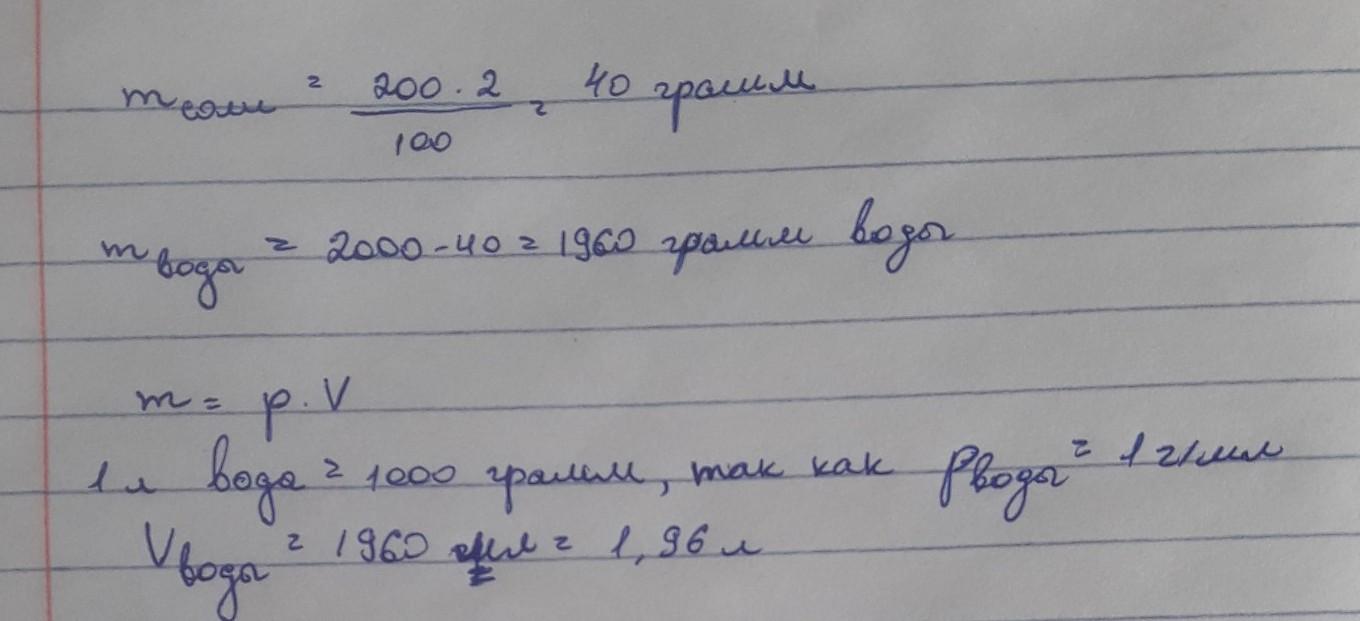 m соли = 200 · 2 / 100 = 40 грамм
m воды = 2000 - 40 = 1960 грамм воды
m = ρ · V
1 л вода = 1000 грамм, так как ρ воды = 1 г/мл
V воды = 1960 мл = 1,96 л